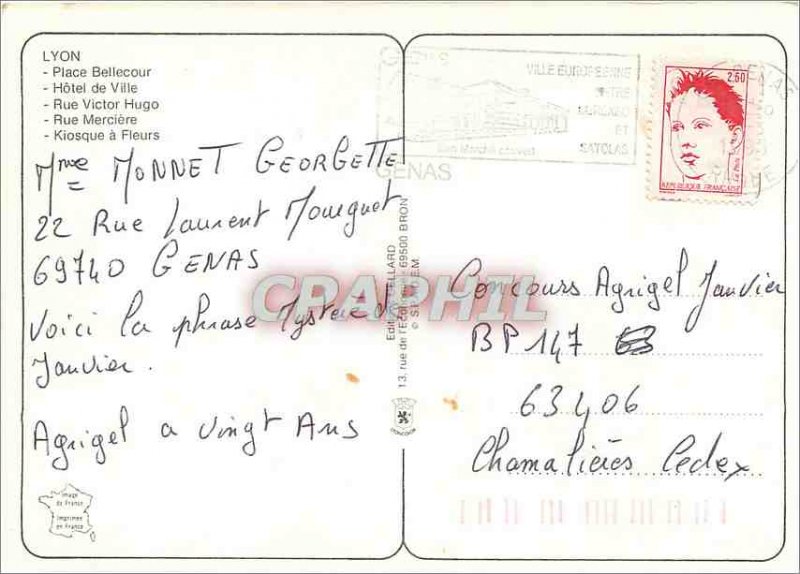 LYON
- Place Bellecour
- Hôtel de Ville
- Rue Victor Hugo
- Rue Mercière
- Kiosque à Fleurs
Mme MONNET GEORGETTE
22 Rue Laurent Mourguet
69740 GENAS
Voici la phrase Mystère de
Janvier.
Agrigel a vingt Ans
Image
de France
Imprimée
en France
VILLE EUROPEENNE
ENTRE
ET
SATOLAS
GENAS
GENAS
2,50
La Poste
REPUBLIQUE FRANÇAISE
13, rue de l'Ec 69500 BRON
CPARPHIL
Concours Agrigel Janvier
BP 147
63406
Chamalières Cedex